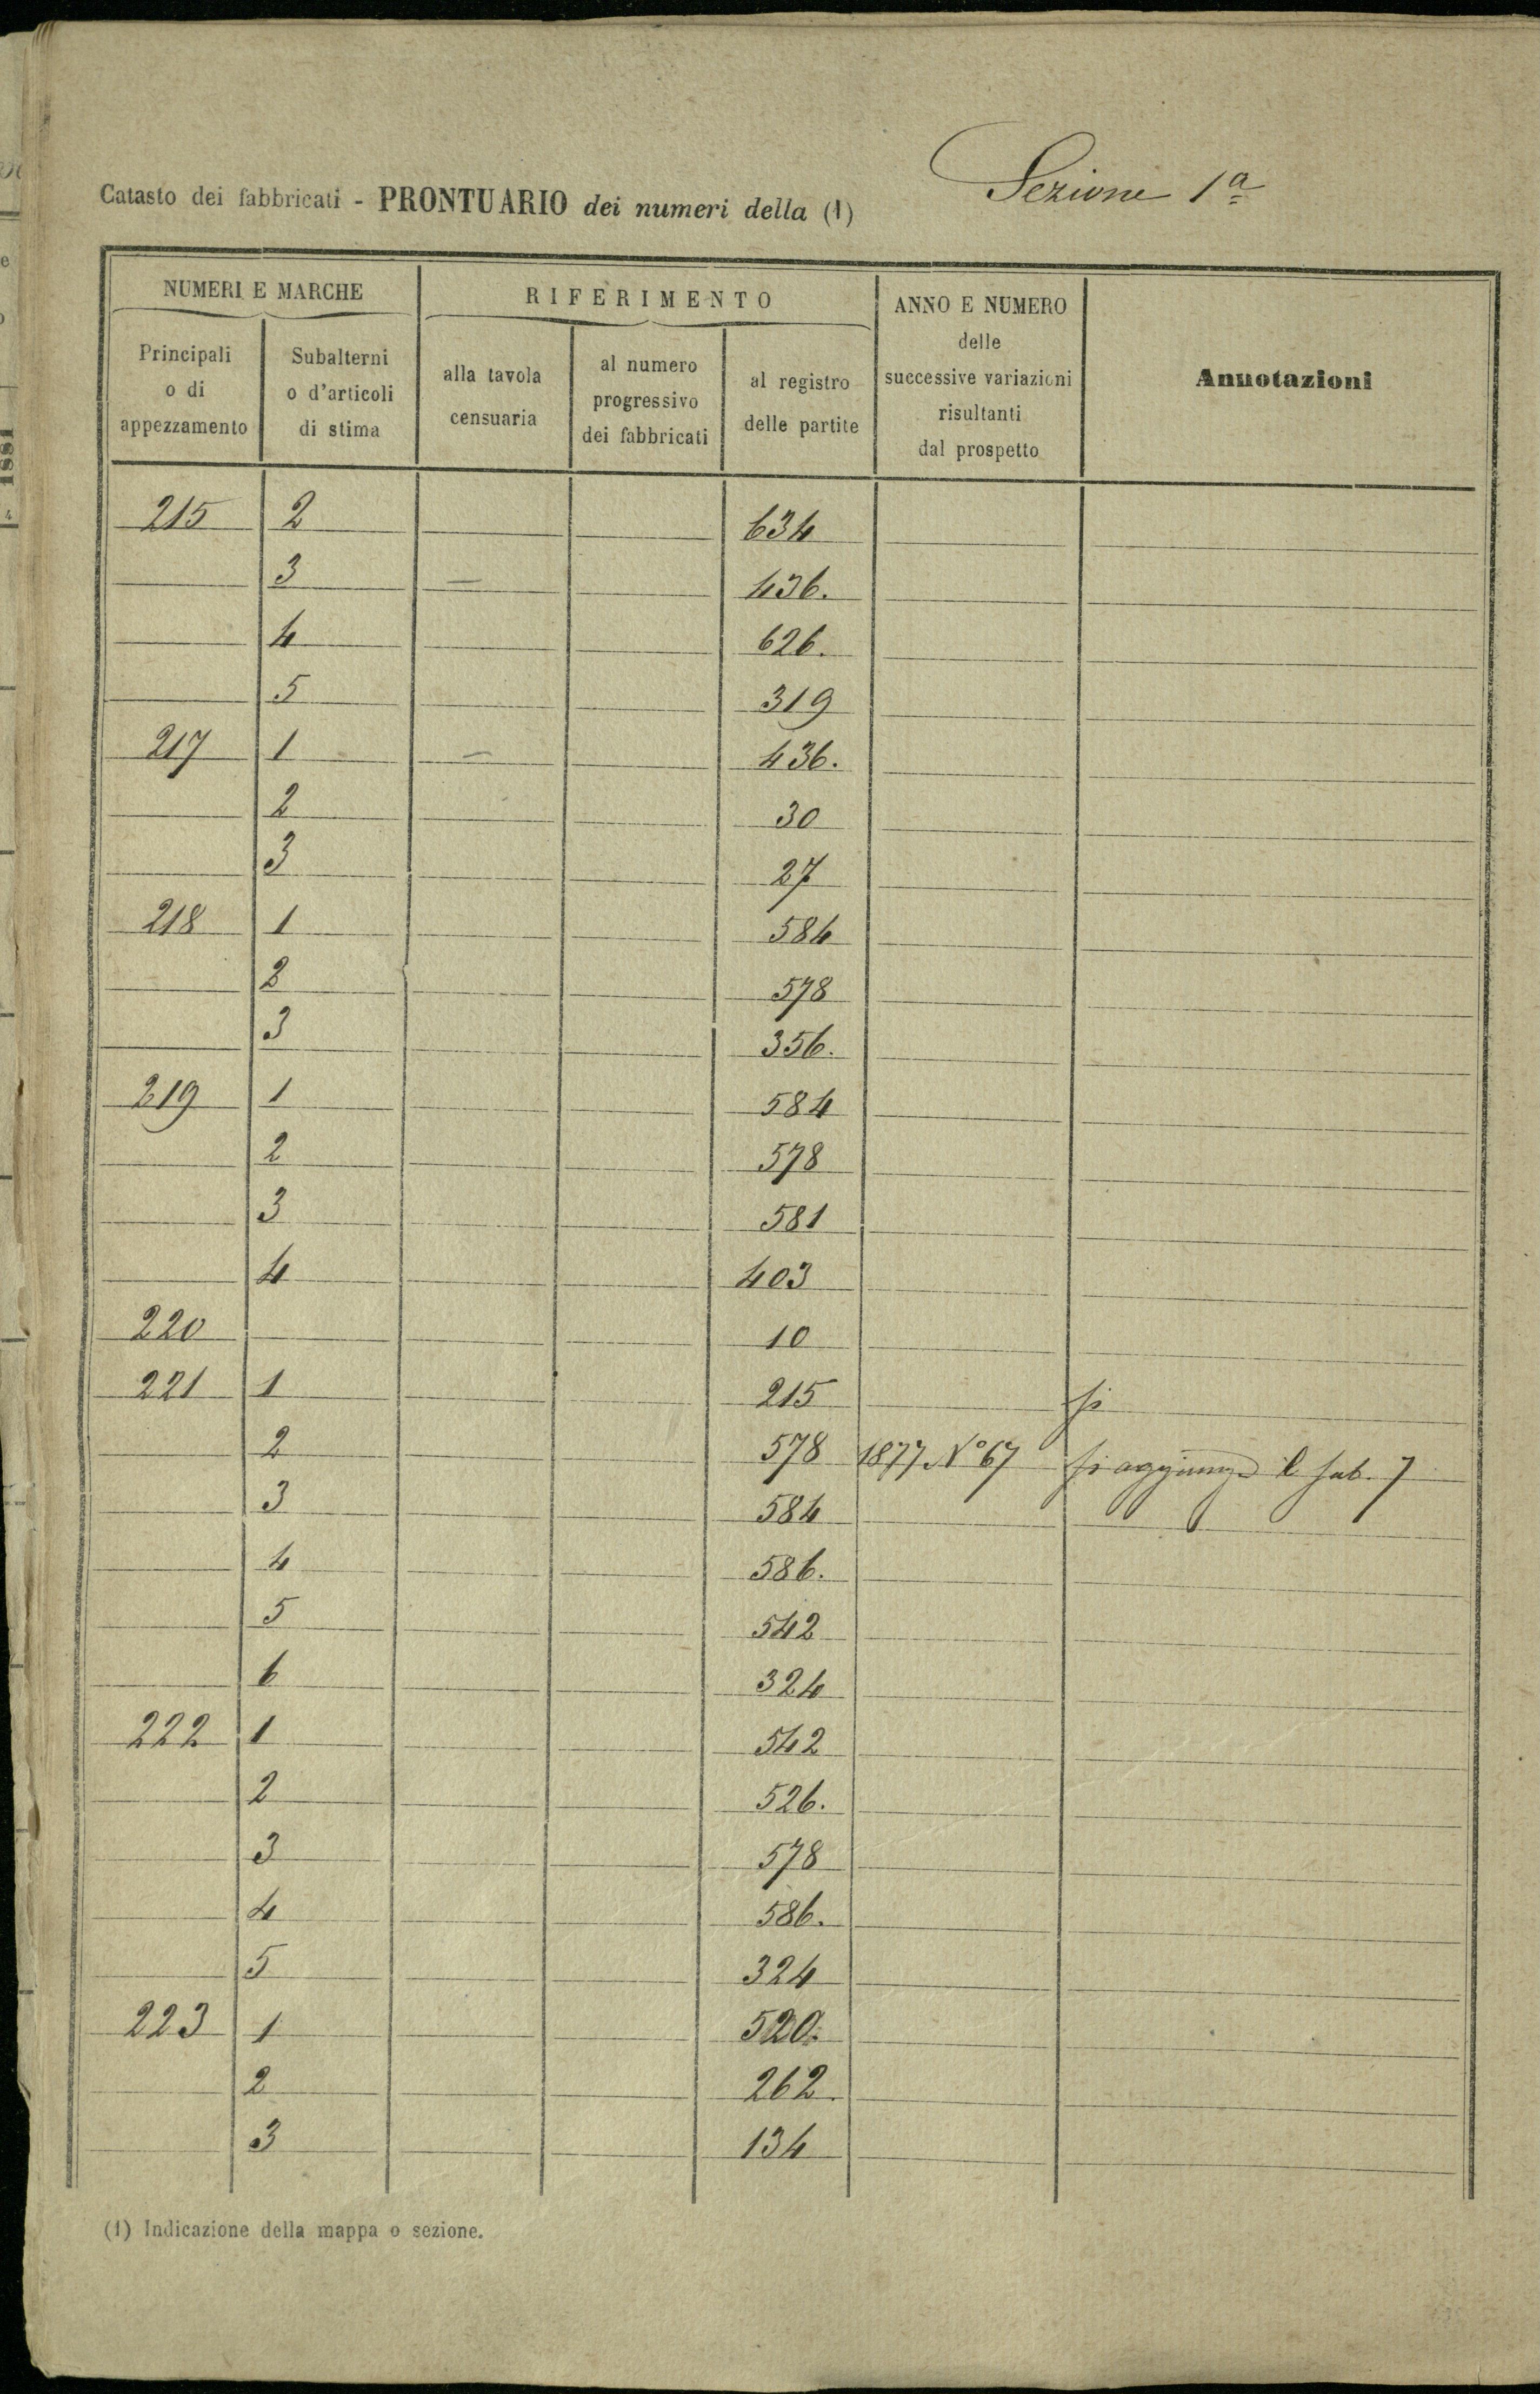 Sezione 1ª
Catasto dei fabbricati - PRONTUARIO dei numeri della (1)
NUMERI E MARCHE
RIFERIMENTO
ANNO E NUMERO
delle
successive variazioni
risultanti
dal prospetto
Annotazioni
Principali
o di
appezzamento
Subalterni
o d'articoli
di stima
alla tavola
censuaria
al numero
progressivo
dei fabbricati
al registro
delle partite
215 2 634
3 — 436.
4 626.
5 319
217 1 — 436.
2 30
3 27
218 1 584
2 578
3 356.
219 1 584
2 578
3 581
4 403
220 10
221 1 215 si
2 578 1877 Nº 67 si aggiunge il sub. 7
3 584
4 586.
5 542
6 324
222 1 542
2 526.
3 578
4 586.
5 324
223 1 520.
2 262.
3 134
(1) Indicazione della mappa o sezione.
1881